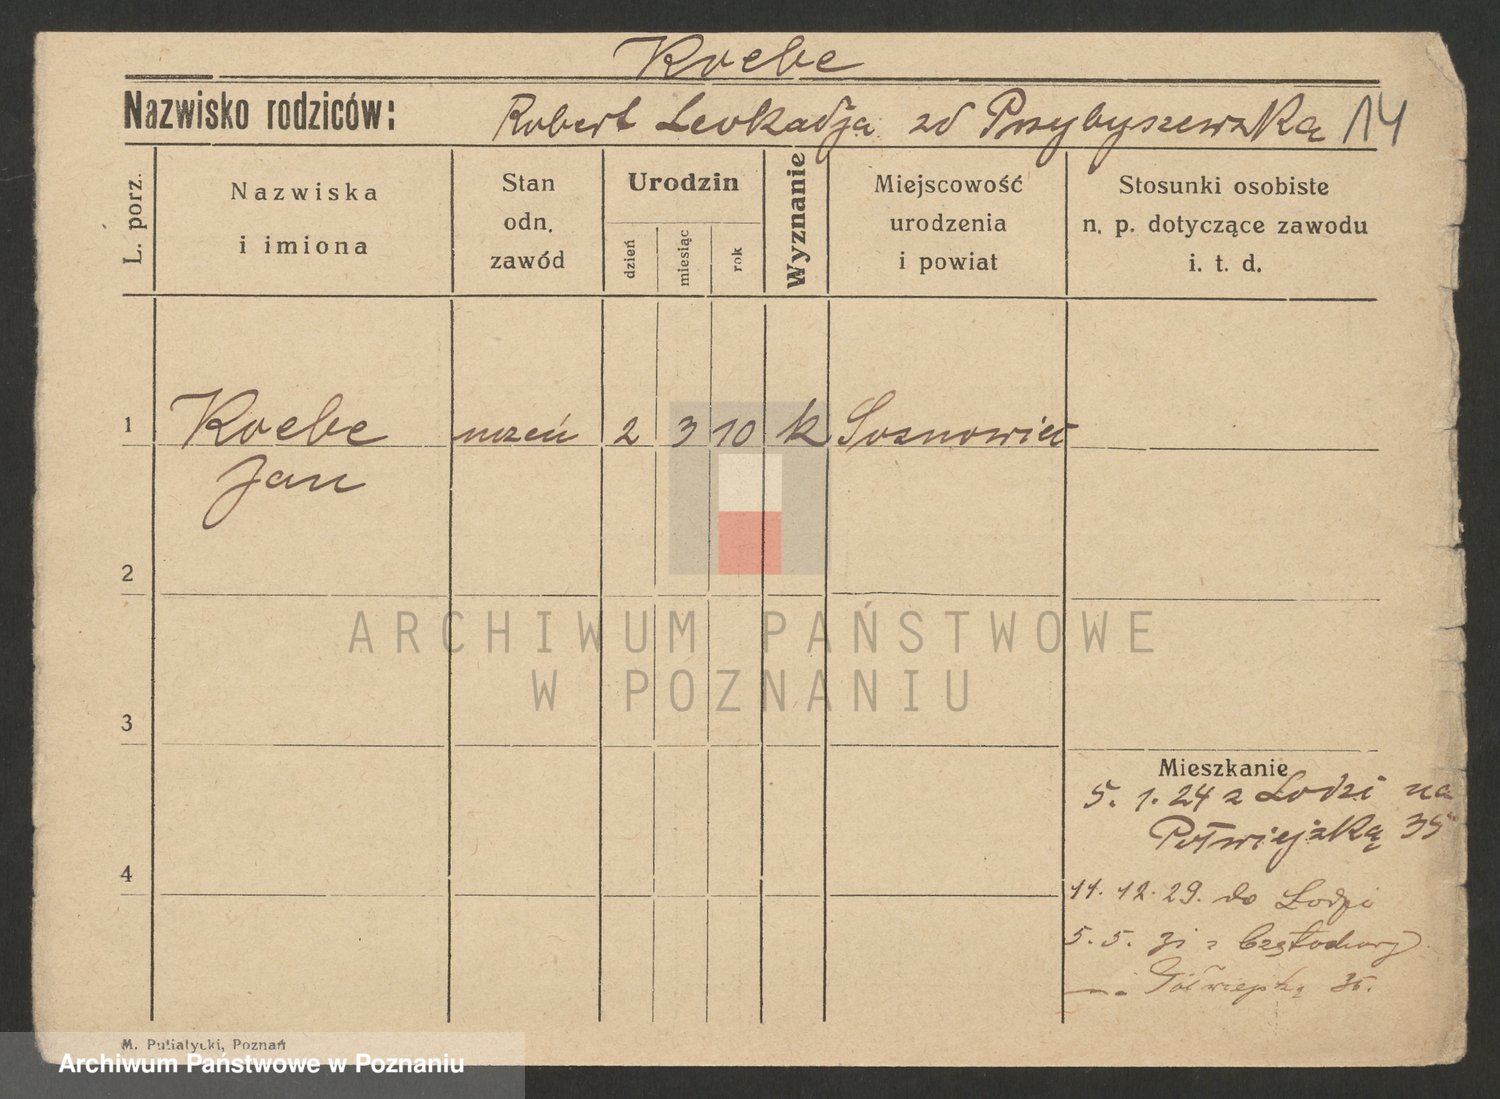 Koebe
Nazwisko rodziców: Robert Leokadja zd Przybyszewska 14
L. porz. Nazwiska i imiona Stan odn. zawód Urodzin dzień miesiąc rok Wyznanie Miejscowość urodzenia i powiat Stosunki osobiste n. p. dotyczące zawodu i. t. d.
1 Koebe uczeń 2 3 10 k Sosnowiec
Jan
2
ARCHIWUM PAŃSTWOWE
W POZNANIU
3
Mieszkanie
5. 1. 24 z Lodzi na
Półwiejską 35
4
11. 12. 29. do Lodzi
5. 5. 31 z Częstochowy
Półwiejską 35.
M. Putiatycki, Poznań
Archiwum Państwowe w Poznaniu